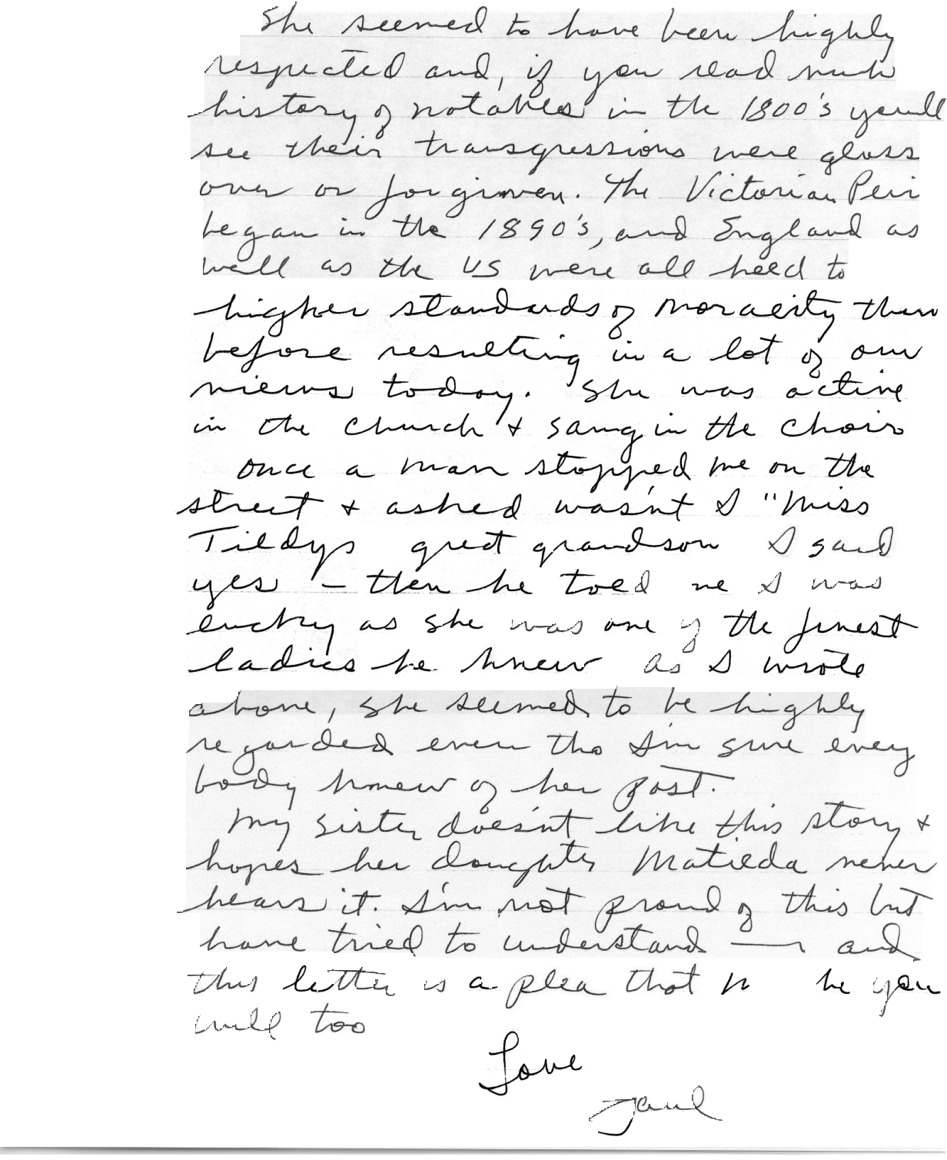 She seemed to have been highly
respected and, if you read much
history of notables in the 1800's you'll
see their transgressions were gloss
over or forgiven. The Victorian Peri
began in the 1890's, and England as
well as the US were all heed to
higher standards of moracity than
before resulting in a lot of our
views today. She was active
in the church & sang in the choir
once a man stopped me on the
street & asked wasn't I "Miss
Tildys great grandson I said
yes - then he toed me I was
lucky as she was one of the finest
ladies he knew as I wrote
above, she seemed to be highly
regarded even tho I'm sure every
body knew of her past.
My sister doesn't like this story &
hopes her daughter Matilda never
hears it. I'm not proud of this but
have tried to understand — and
this letter is a plea that he you
will too
Love